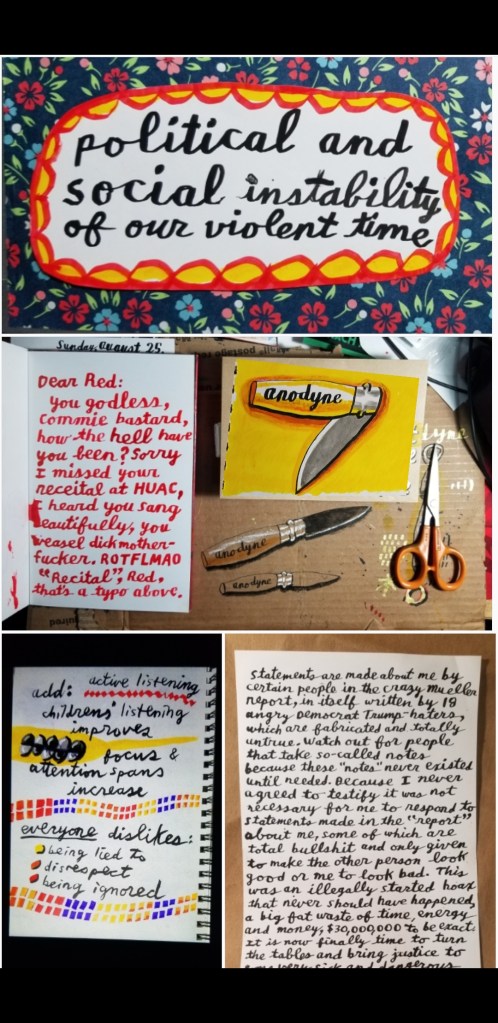 political and
social instability
of our violent time
Sunday, August 25,
Dear Red:
You godless,
commie bastard,
how the hell have
you been? Sorry
I missed your
receital at HUAC,
I heard you sang
beautifully, you
weasel dickmother-
fucker. ROTFLMAO
"Recital", Red.
that's a typo above.
anodyne
anodyne
anodyne
add: active listening
childrens' listening
improves
focus &
attention spans
increase
everyone dislikes:
being lied to
disrespect
being ignored
Statements are made about me by
certain people in the crazy Mueller
report, in itself written by 18
angry Democrat Trump-haters,
which are fabricated and totally
untrue. Watch out for people
that take so-called notes
because these "notes" never existed
until needed. Because I never
agreed to testify it was not
necessary for me to respond to
statements made in the "report"
about me, some of which are
total bullshit and only given
to make the other person look
good or me to look bad. This
was an illegally started hoax
that never should have happened,
a big fat waste of time, energy
and money, $30,000,000 to be exact.
It is now finally time to turn
the tables and bring justice to
some very sick and dangerous